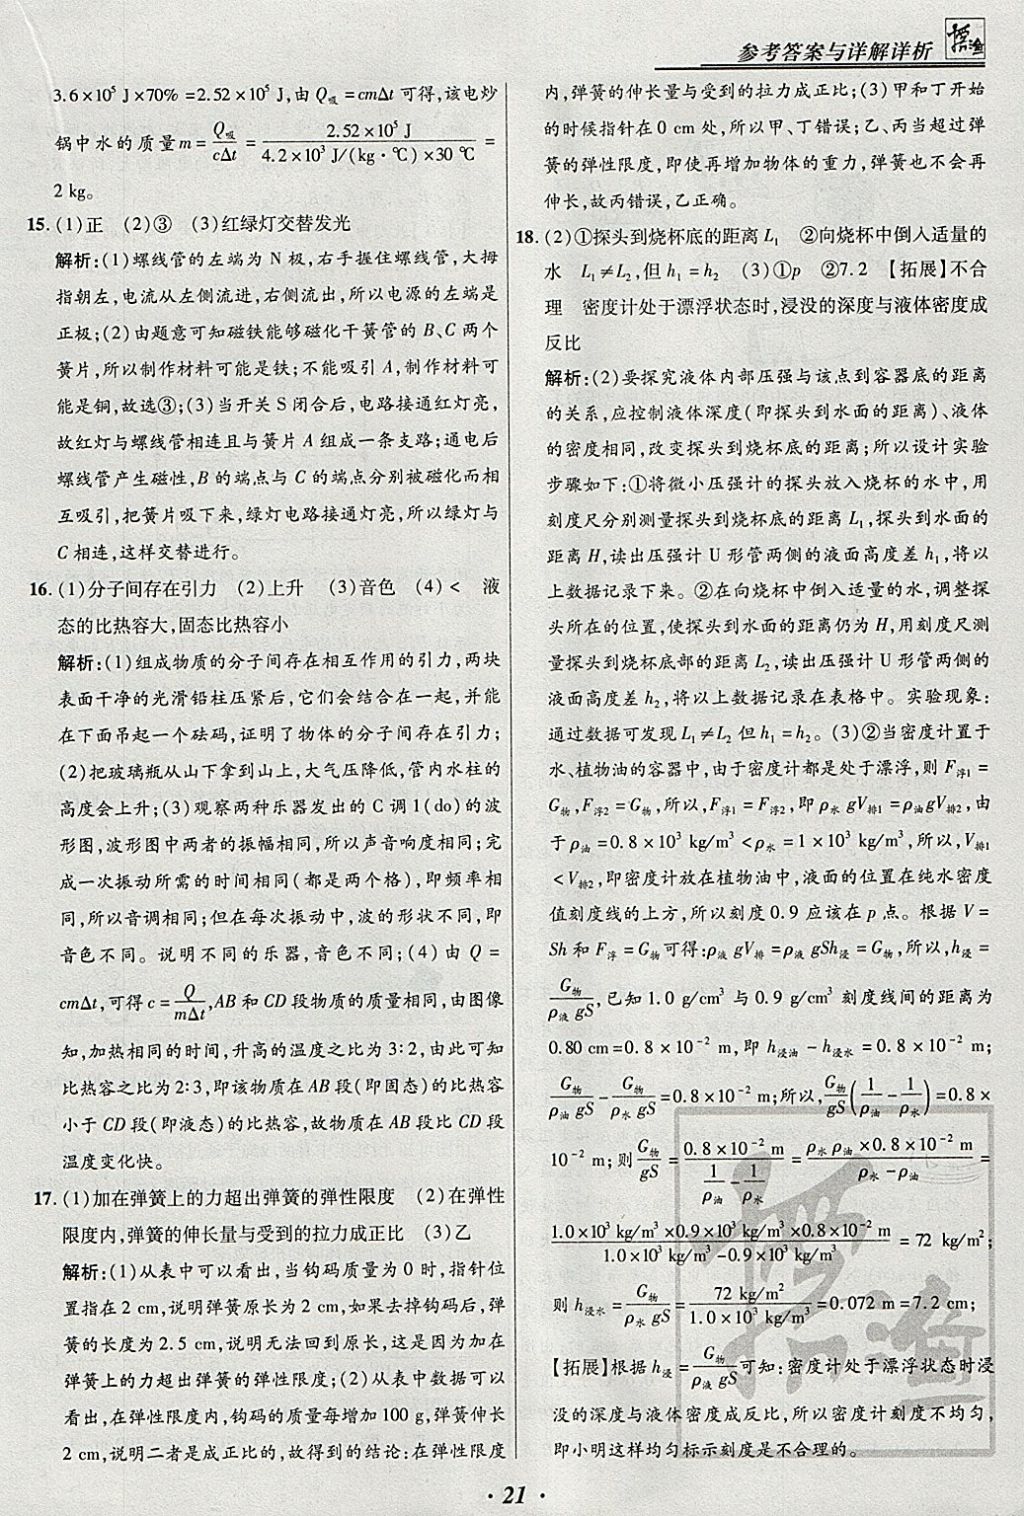 参考答案与详解详析
3.6×10⁵ J×70%=2.52×10⁵ J,由 Q吸=cmΔt 可得,该电炒
锅中水的质量 m=Q吸/(cΔt)=2.52×10⁵ J/(4.2×10³ J/(kg·℃)×30 ℃)=
2 kg。
15.(1)正 (2)③ (3)红绿灯交替发光
解析:(1)螺线管的左端为 N 极,右手握住螺线管,大拇
指朝左,电流从左侧流进,右侧流出,所以电源的左端是
正极;(2)由题意可知磁铁能够磁化干簧管的 B、C 两个
簧片,所以制作材料可能是铁;不能吸引 A,制作材料可
能是铜,故选③;(3)当开关 S 闭合后,电路接通红灯亮,
故红灯与螺线管相连且与簧片 A 组成一条支路;通电后
螺线管产生磁性,B 的端点与 C 的端点分别被磁化而相
互吸引,把簧片吸下来,绿灯电路接通灯亮,所以绿灯与
C 相连,这样交替进行。
16.(1)分子间存在引力 (2)上升 (3)音色 (4)< 液
态的比热容大,固态比热容小
解析:(1)组成物质的分子间存在相互作用的引力,两块
表面干净的光滑铅柱压紧后,它们会结合在一起,并能
在下面吊起一个砝码,证明了物体的分子间存在引力;
(2)把玻璃瓶从山下拿到山上,大气压降低,管内水柱的
高度会上升;(3)观察两种乐器发出的 C 调 1(do)的波
形图,波形图中两者的振幅相同,所以声音响度相同;完
成一次振动所需的时间相同(都是两个格),即频率相
同,所以音调相同;但在每次振动中,波的形状不同,即
音色不同。说明不同的乐器,音色不同;(4)由 Q=
cmΔt,可得 c=Q/(mΔt),AB 和 CD 段物质的质量相同,由图像
知,加热相同的时间,升高的温度之比为 3:2,由此可知
比热容之比为 2:3,即该物质在 AB 段(即固态)的比热容
小于 CD 段(即液态)的比热容,故物质在 AB 段比 CD 段
温度变化快。
17.(1)加在弹簧上的力超出弹簧的弹性限度 (2)在弹性
限度内,弹簧的伸长量与受到的拉力成正比 (3)乙
解析:(1)从表中可以看出,当钩码质量为 0 时,指针位
置指在 2 cm,说明弹簧原长为 2 cm,如果去掉钩码后,弹
簧的长度为 2.5 cm,说明无法回到原长,这是因为加在
弹簧上的力超出弹簧的弹性限度;(2)从表中数据可以
看出,在弹性限度内,钩码的质量每增加 100 g,弹簧伸长
2 cm,说明二者是成正比的,故得到的结论:在弹性限度
内,弹簧的伸长量与受到的拉力成正比;(3)甲和丁开始
的时候指针在 0 cm 处,所以甲、丁错误;乙、丙当超过弹
簧的弹性限度,即使再增加物体的重力,弹簧也不会再
伸长,故丙错误,乙正确。
18.(2)①探头到烧杯底的距离 L₁ ②向烧杯中倒入适量的
水 L₁≠L₂,但 h₁=h₂ (3)①p ②7.2 【拓展】不合
理 密度计处于漂浮状态时,浸没的深度与液体密度成
反比
解析:(2)要探究液体内部压强与该点到容器底的距离
的关系,应控制液体深度(即探头到水面的距离)、液体
的密度相同,改变探头到烧杯底的距离;所以设计实验
步骤如下:①将微小压强计的探头放入烧杯的水中,用
刻度尺分别测量探头到烧杯底的距离 L₁,探头到水面的
距离 H,读出压强计 U 形管两侧的液面高度差 h₁,将以
上数据记录下来。②在烧杯中倒入适量的水,调整探
头所在的位置,使探头到水面的距离仍为 H,用刻度尺测
量探头到烧杯底部的距离 L₂,读出压强计 U 形管两侧的
液面高度差 h₂,将以上数据记录在表格中。实验现象:
通过数据可发现 L₁≠L₂ 但 h₁=h₂。(3)②当密度计置于
水、植物油的容器中,由于密度计都是处于漂浮,则 F浮1=
G物,F浮2=G物,所以,F浮1=F浮2,即 ρ水 gV排1=ρ油 gV排2,由
于 ρ油=0.8×10³ kg/m³<ρ水=1×10³ kg/m³,所以,V排1
<V排2,即密度计放在植物油中,液面的位置在纯水密度
值刻度线的上方,所以刻度 0.9 应该在 p 点。根据 V=
Sh 和 F浮=G物 可得:ρ液 gV排=ρ液 gSh浸=G物,所以,h浸=
G物/(ρ液 gS),已知 1.0 g/cm³ 与 0.9 g/cm³ 刻度线间的距离为
0.80 cm=0.8×10⁻² m,即 h浸油-h浸水=0.8×10⁻² m;
G物/(ρ油 gS)-G物/(ρ水 gS)=0.8×10⁻² m;所以,G物/(gS)(1/ρ油-1/ρ水)=0.8×
10⁻² m;则 G物/(gS)=0.8×10⁻² m/(1/ρ油-1/ρ水)=ρ水 ρ油×0.8×10⁻² m/(ρ水-ρ油)=
1.0×10³ kg/m³×0.9×10³ kg/m³×0.8×10⁻² m/(1.0×10³ kg/m³-0.9×10³ kg/m³)=72 kg/m²;
则 h浸水=G物/(ρ水 gS)=72 kg/m²/(1.0×10³ kg/m³)=0.072 m=7.2 cm;
【拓展】根据 h浸=G物/(ρ液 gS)可知:密度计处于漂浮状态时浸
没的深度与液体密度成反比,所以密度计刻度不均匀,
即小明这样均匀标示刻度是不合理的。
· 21 ·